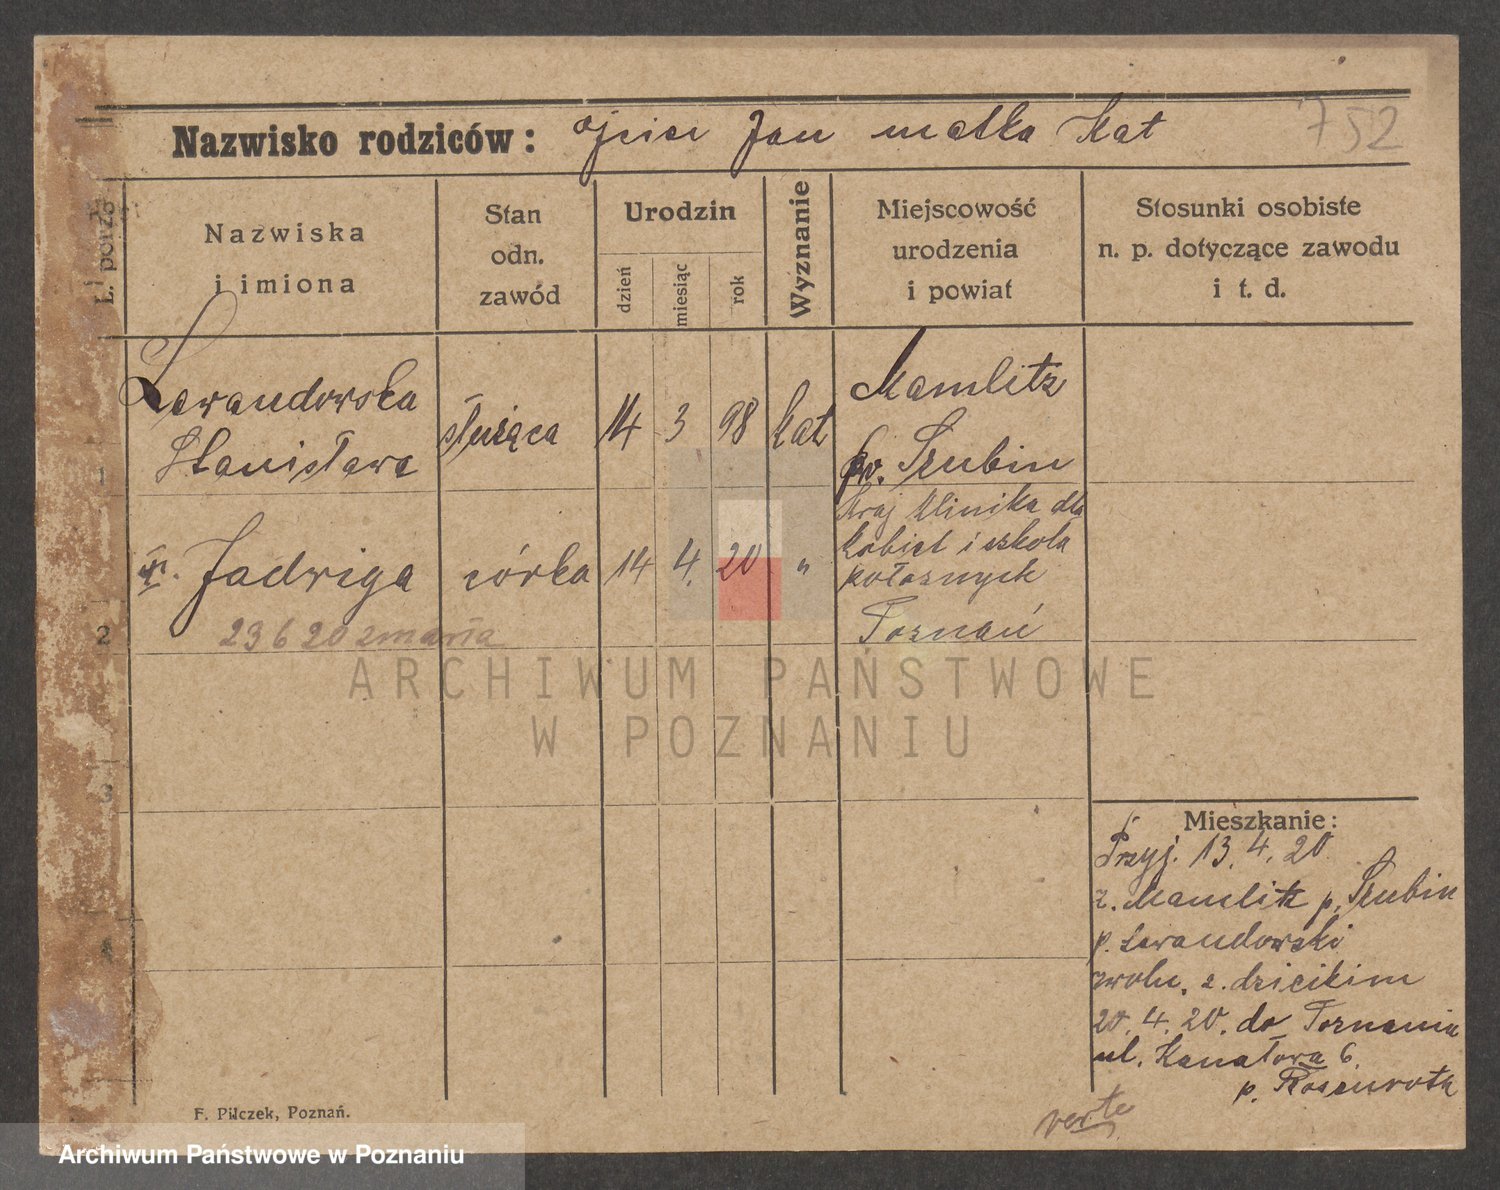 Nazwisko rodziców: ojciec Jan matka Kat
752
L. porzą.
Nazwiska
i imiona
Stan
odn.
zawód
Urodzin
dzień
miesiąc
rok
Wyznanie
Miejscowość
urodzenia
i powiat
Stosunki osobiste
n. p. dotyczące zawodu
i t. d.
1
Lewandowska
Stanisława
służąca
14 3 98 kat
Mamlitz
pw. Szubin
2
Jadwiga
23 6 20 zmarła
córka
14 4. 20 "
Kraj Klinika dla
kobiet i szkoła
położnych
Poznań
3
4
Mieszkanie:
Przyj. 13. 4. 20
z. Mamlitz p. Szubin
p. Lewandowski
zwoln. z. dzieckiem
20. 4. 20. do Poznania
ul. Kanałowa 6
p. Rosenroth
verte
F. Pilczek, Poznań.
ARCHIWUM PAŃSTWOWE
W POZNANIU
Archiwum Państwowe w Poznaniu